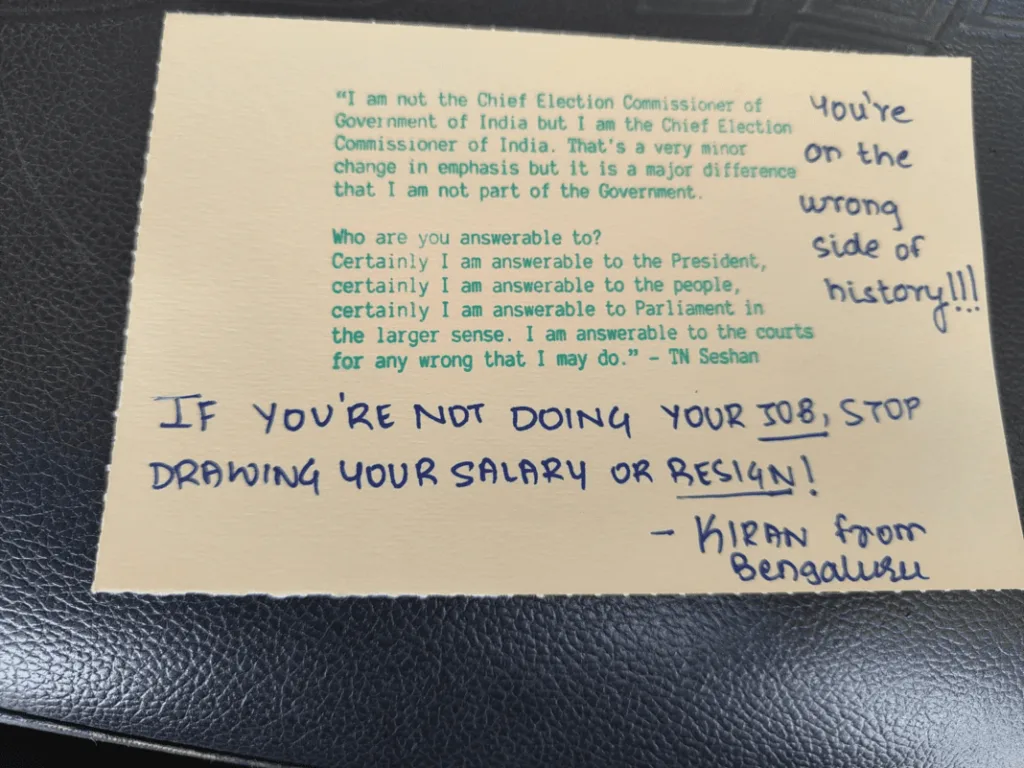 "I am not the Chief Election Commissioner of
Government of India but I am the Chief Election
Commissioner of India. That's a very minor
change in emphasis but it is a major difference
that I am not part of the Government.
Who are you answerable to?
Certainly I am answerable to the President,
certainly I am answerable to the people,
certainly I am answerable to Parliament in
the larger sense. I am answerable to the courts
for any wrong that I may do." - TN Seshan
You're
on the
wrong
side of
history!!!
IF YOU'RE NOT DOING YOUR JOB, STOP
DRAWING YOUR SALARY OR RESIGN!
- KIRAN from
Bengaluru